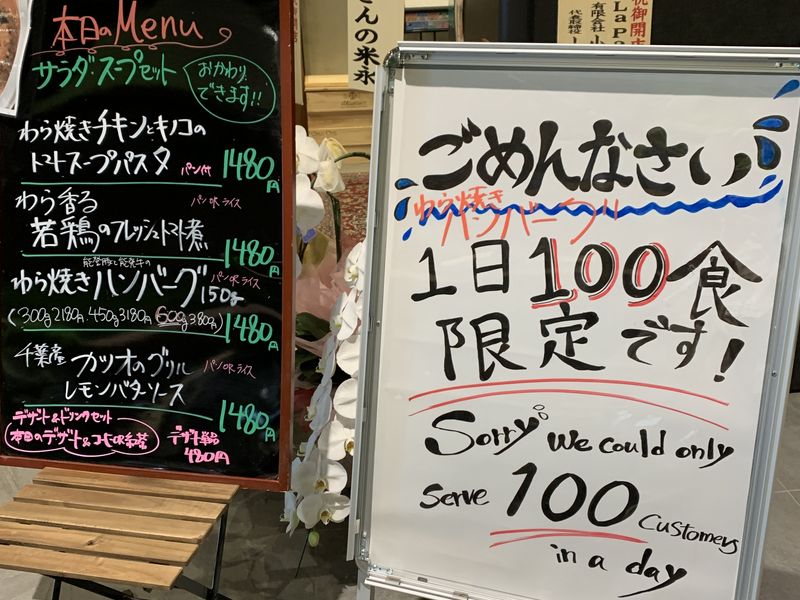 本日のMenu
サラダ・スープセット
おかわり
できます!!
わら焼きチキンとキノコの
トマトスープパスタ パン付 1480円
わら香る パンorライス
若鶏のフレッシュトマト煮
1480円
能登豚と能登牛の
わら焼きハンバーグ 150g パンorライス
(300g2180円.450g3180円.600g3980円)
1480円
千葉産 カツオのグリル パンorライス
レモンバターソース
1480円
デザート&ドリンクセット
本日のデザート&コーヒーor紅茶
480円
さんの米永
祝御開店
有限会社
LaPa
代表取締役
ごめんなさい
わら焼き
ハンバーグ
1日100食
限定です!
Sorry we could only
serve 100
customers
in a day